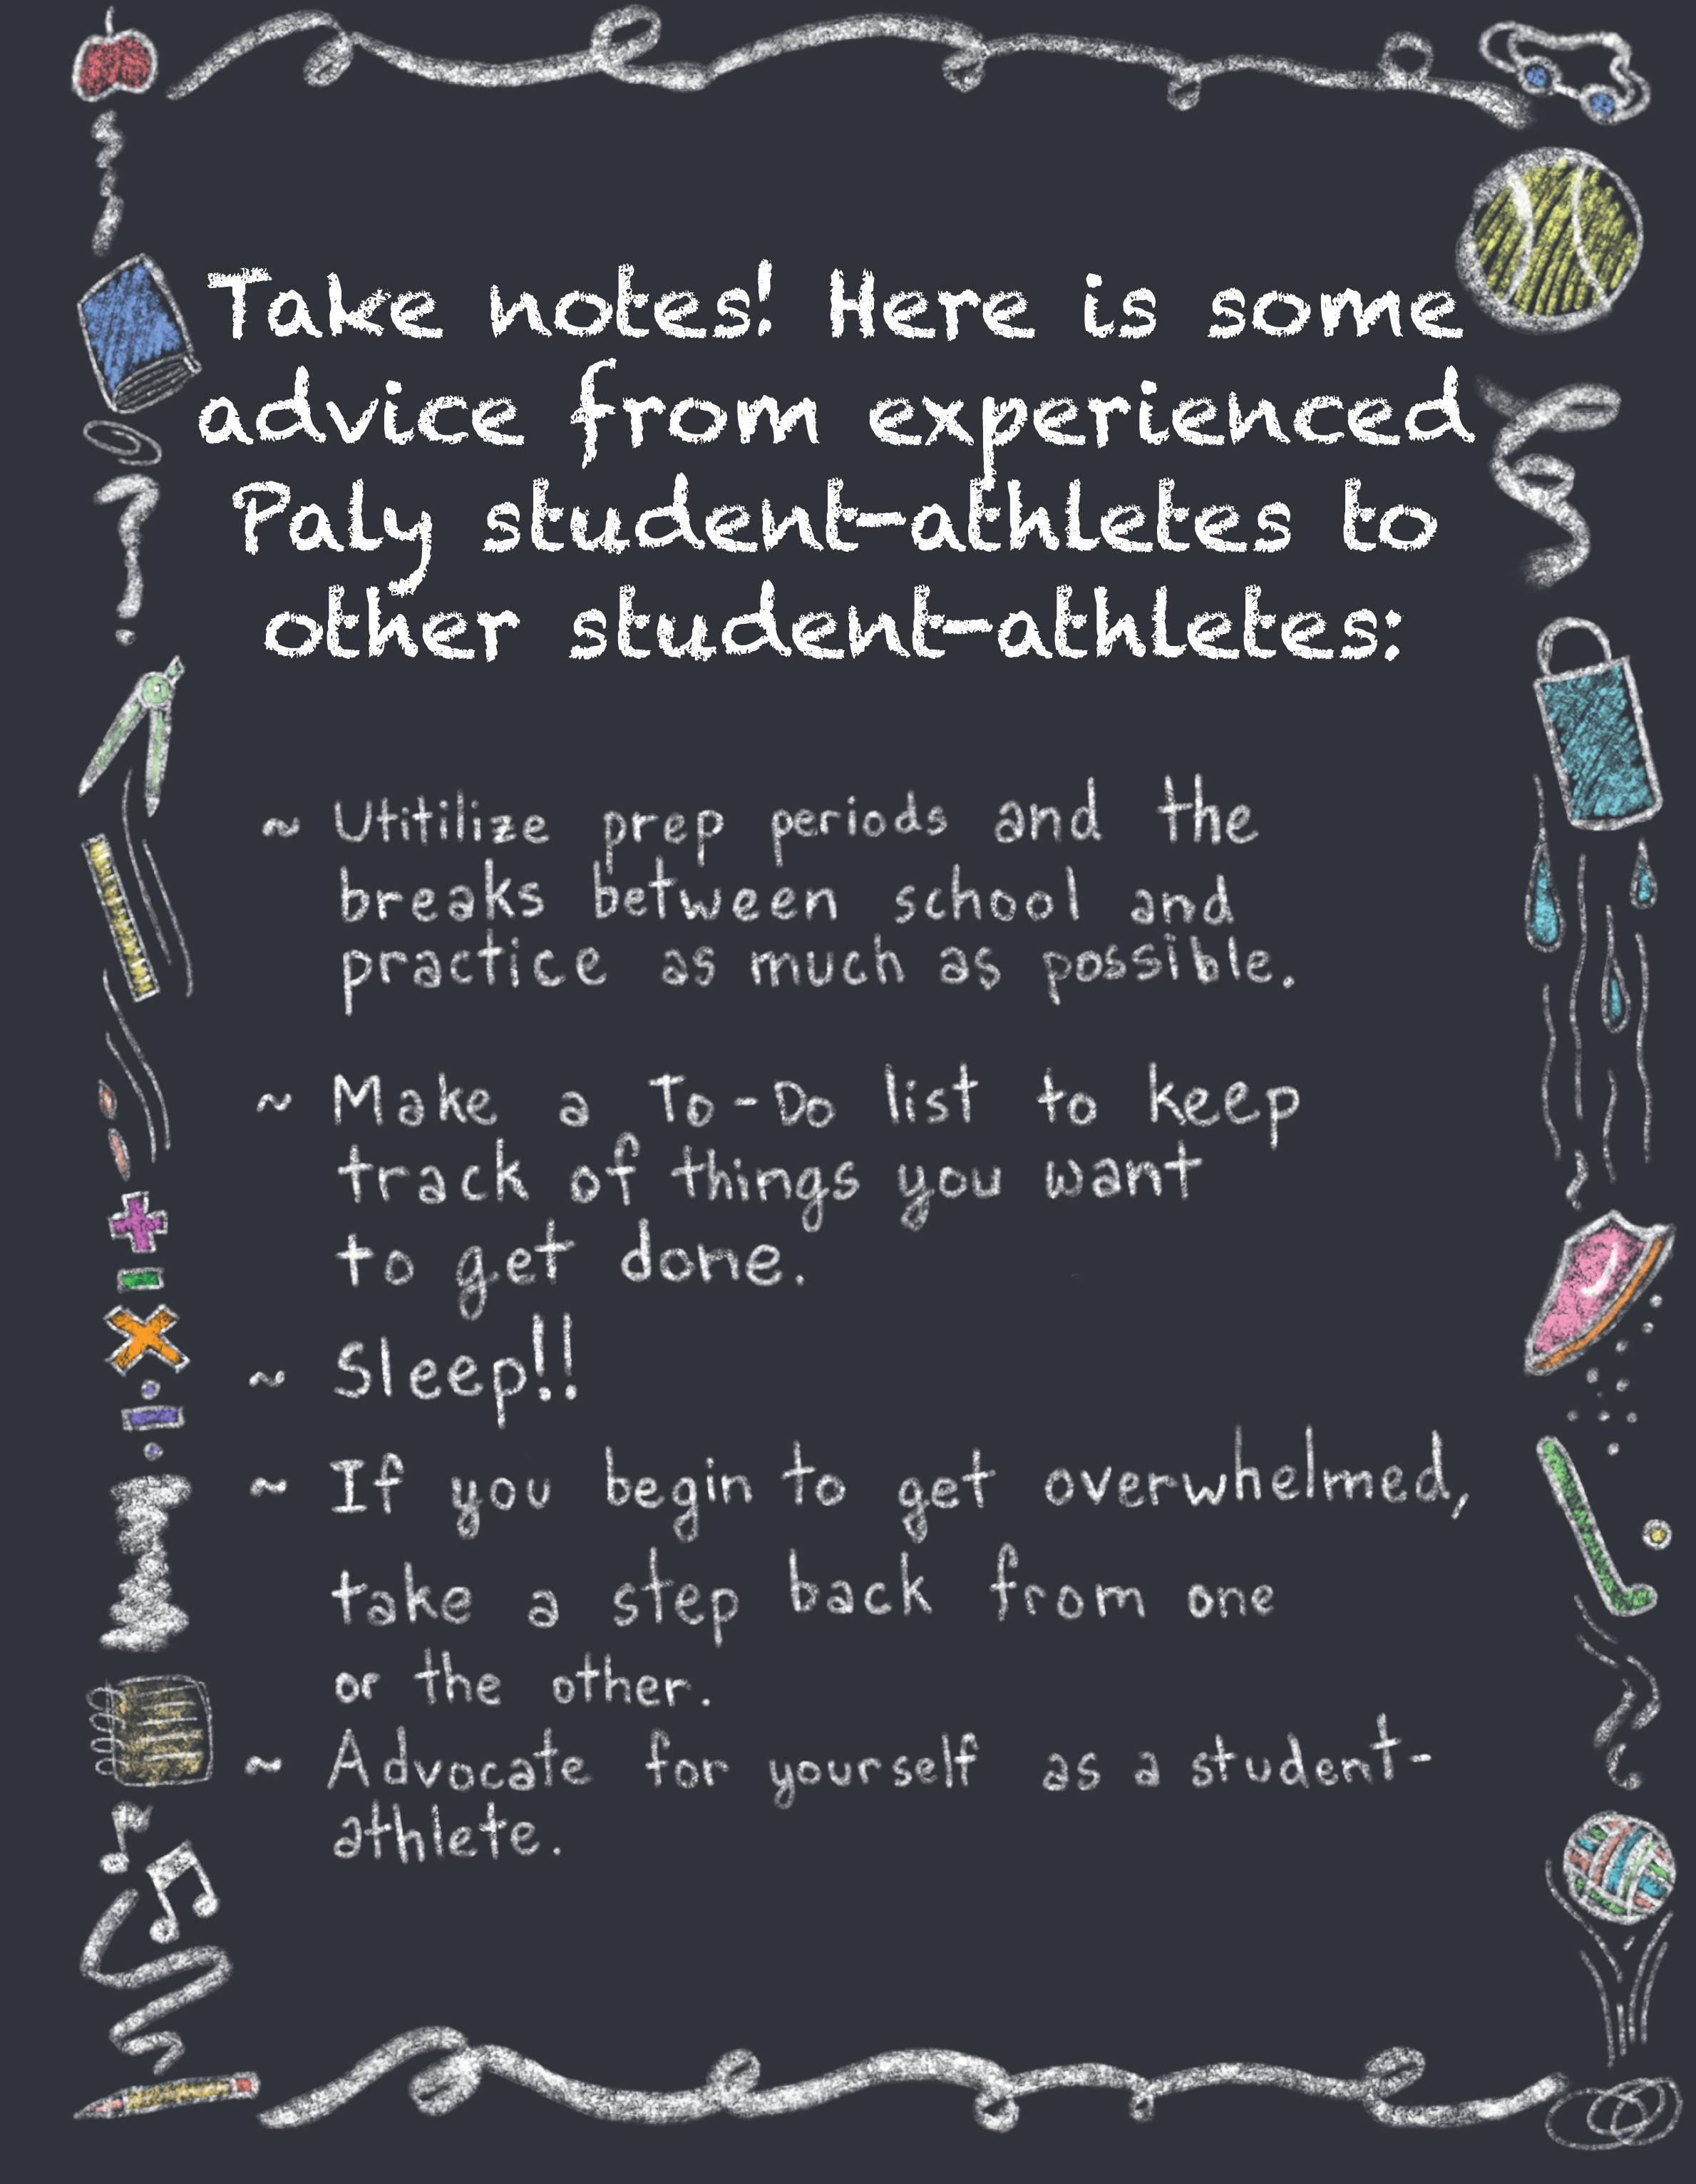 Take notes! Here is some
advice from experienced
Paly student-athletes to
other student-athletes:
~ Utitilize prep periods and the
breaks between school and
practice as much as possible.
~ Make a To-Do list to keep
track of things you want
to get done.
~ Sleep!!
~ If you begin to get overwhelmed,
take a step back from one
or the other.
~ Advocate for yourself as a student-
athlete.